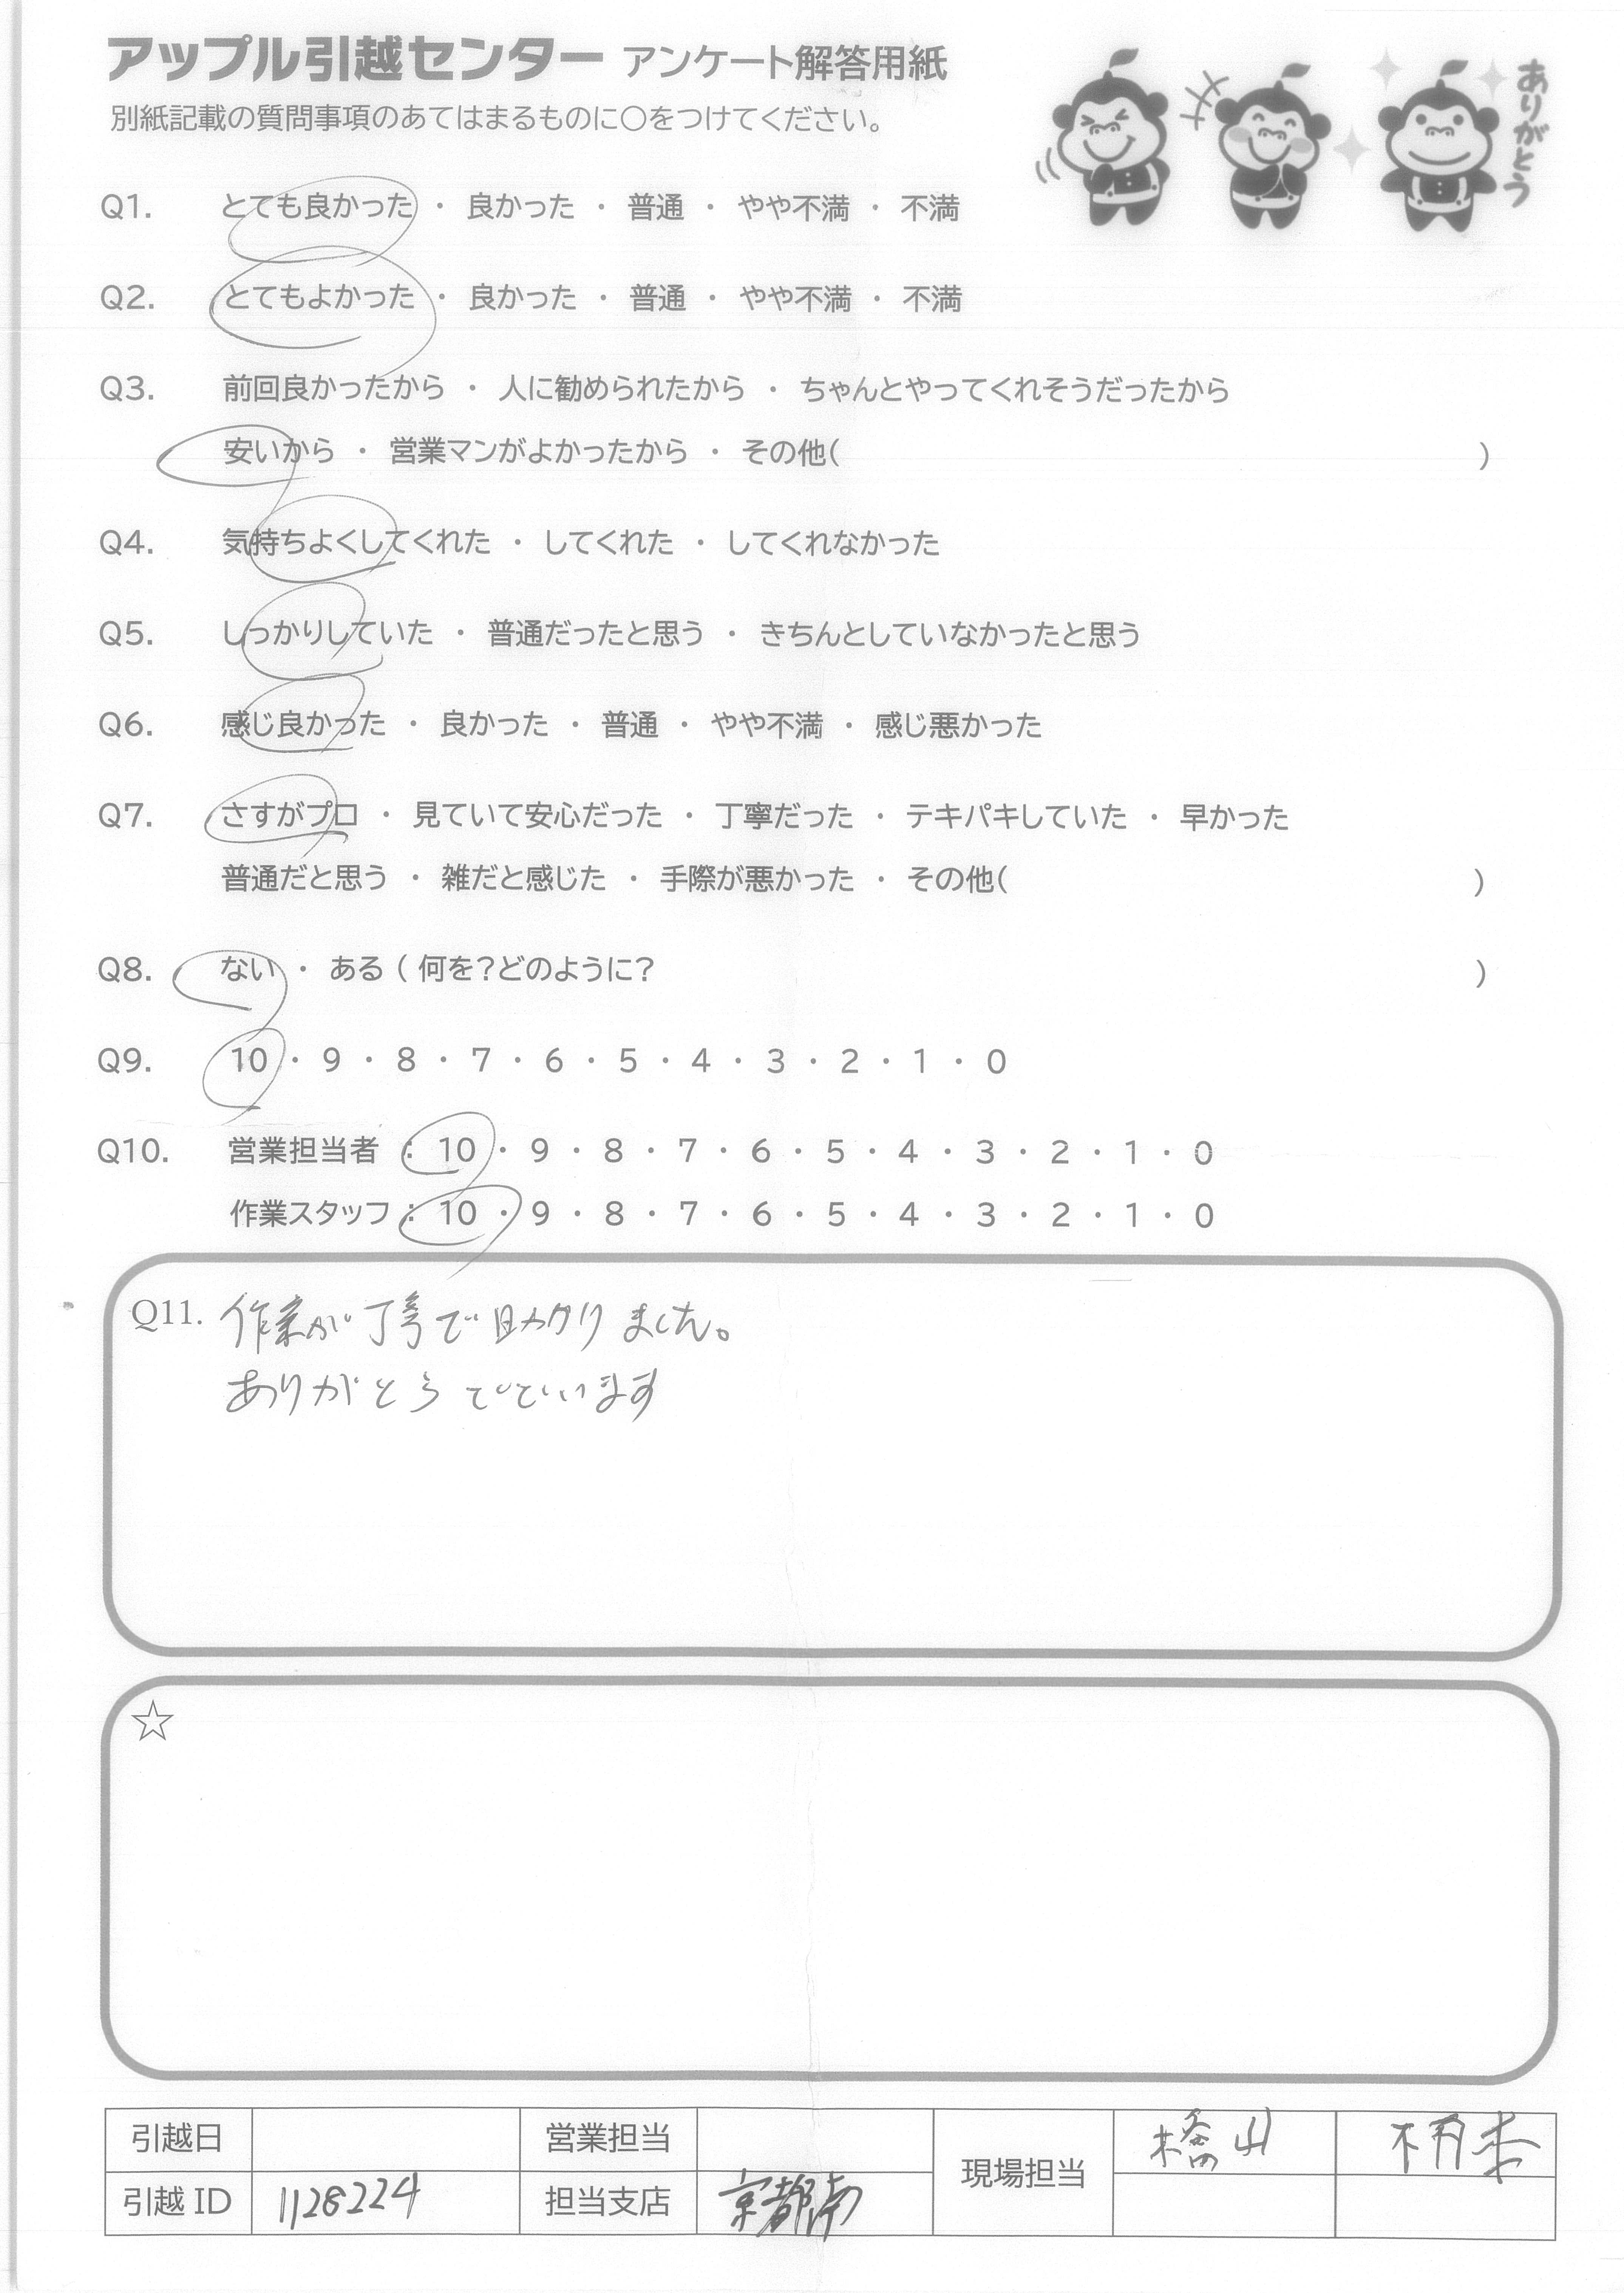 アップル引越センター アンケート解答用紙
別紙記載の質問事項のあてはまるものに○をつけてください。
ありがとう
Q1. とても良かった ・ 良かった ・ 普通 ・ やや不満 ・ 不満
Q2. とてもよかった ・ 良かった ・ 普通 ・ やや不満 ・ 不満
Q3. 前回良かったから ・ 人に勧められたから ・ ちゃんとやってくれそうだったから
安いから ・ 営業マンがよかったから ・ その他( )
Q4. 気持ちよくしてくれた ・ してくれた ・ してくれなかった
Q5. しっかりしていた ・ 普通だったと思う ・ きちんとしていなかったと思う
Q6. 感じ良かった ・ 良かった ・ 普通 ・ やや不満 ・ 感じ悪かった
Q7. さすがプロ ・ 見ていて安心だった ・ 丁寧だった ・ テキパキしていた ・ 早かった
普通だと思う ・ 雑だと感じた ・ 手際が悪かった ・ その他( )
Q8. ない ・ ある ( 何を?どのように? )
Q9. 10 ・ 9 ・ 8 ・ 7 ・ 6 ・ 5 ・ 4 ・ 3 ・ 2 ・ 1 ・ 0
Q10. 営業担当者 : 10 ・ 9 ・ 8 ・ 7 ・ 6 ・ 5 ・ 4 ・ 3 ・ 2 ・ 1 ・ 0
作業スタッフ : 10 ・ 9 ・ 8 ・ 7 ・ 6 ・ 5 ・ 4 ・ 3 ・ 2 ・ 1 ・ 0
Q11. 作業が丁寧で助かりました。
ありがとうございます
☆
引越日 営業担当 現場担当 橋山
引越 ID 1128224 担当支店 京都南